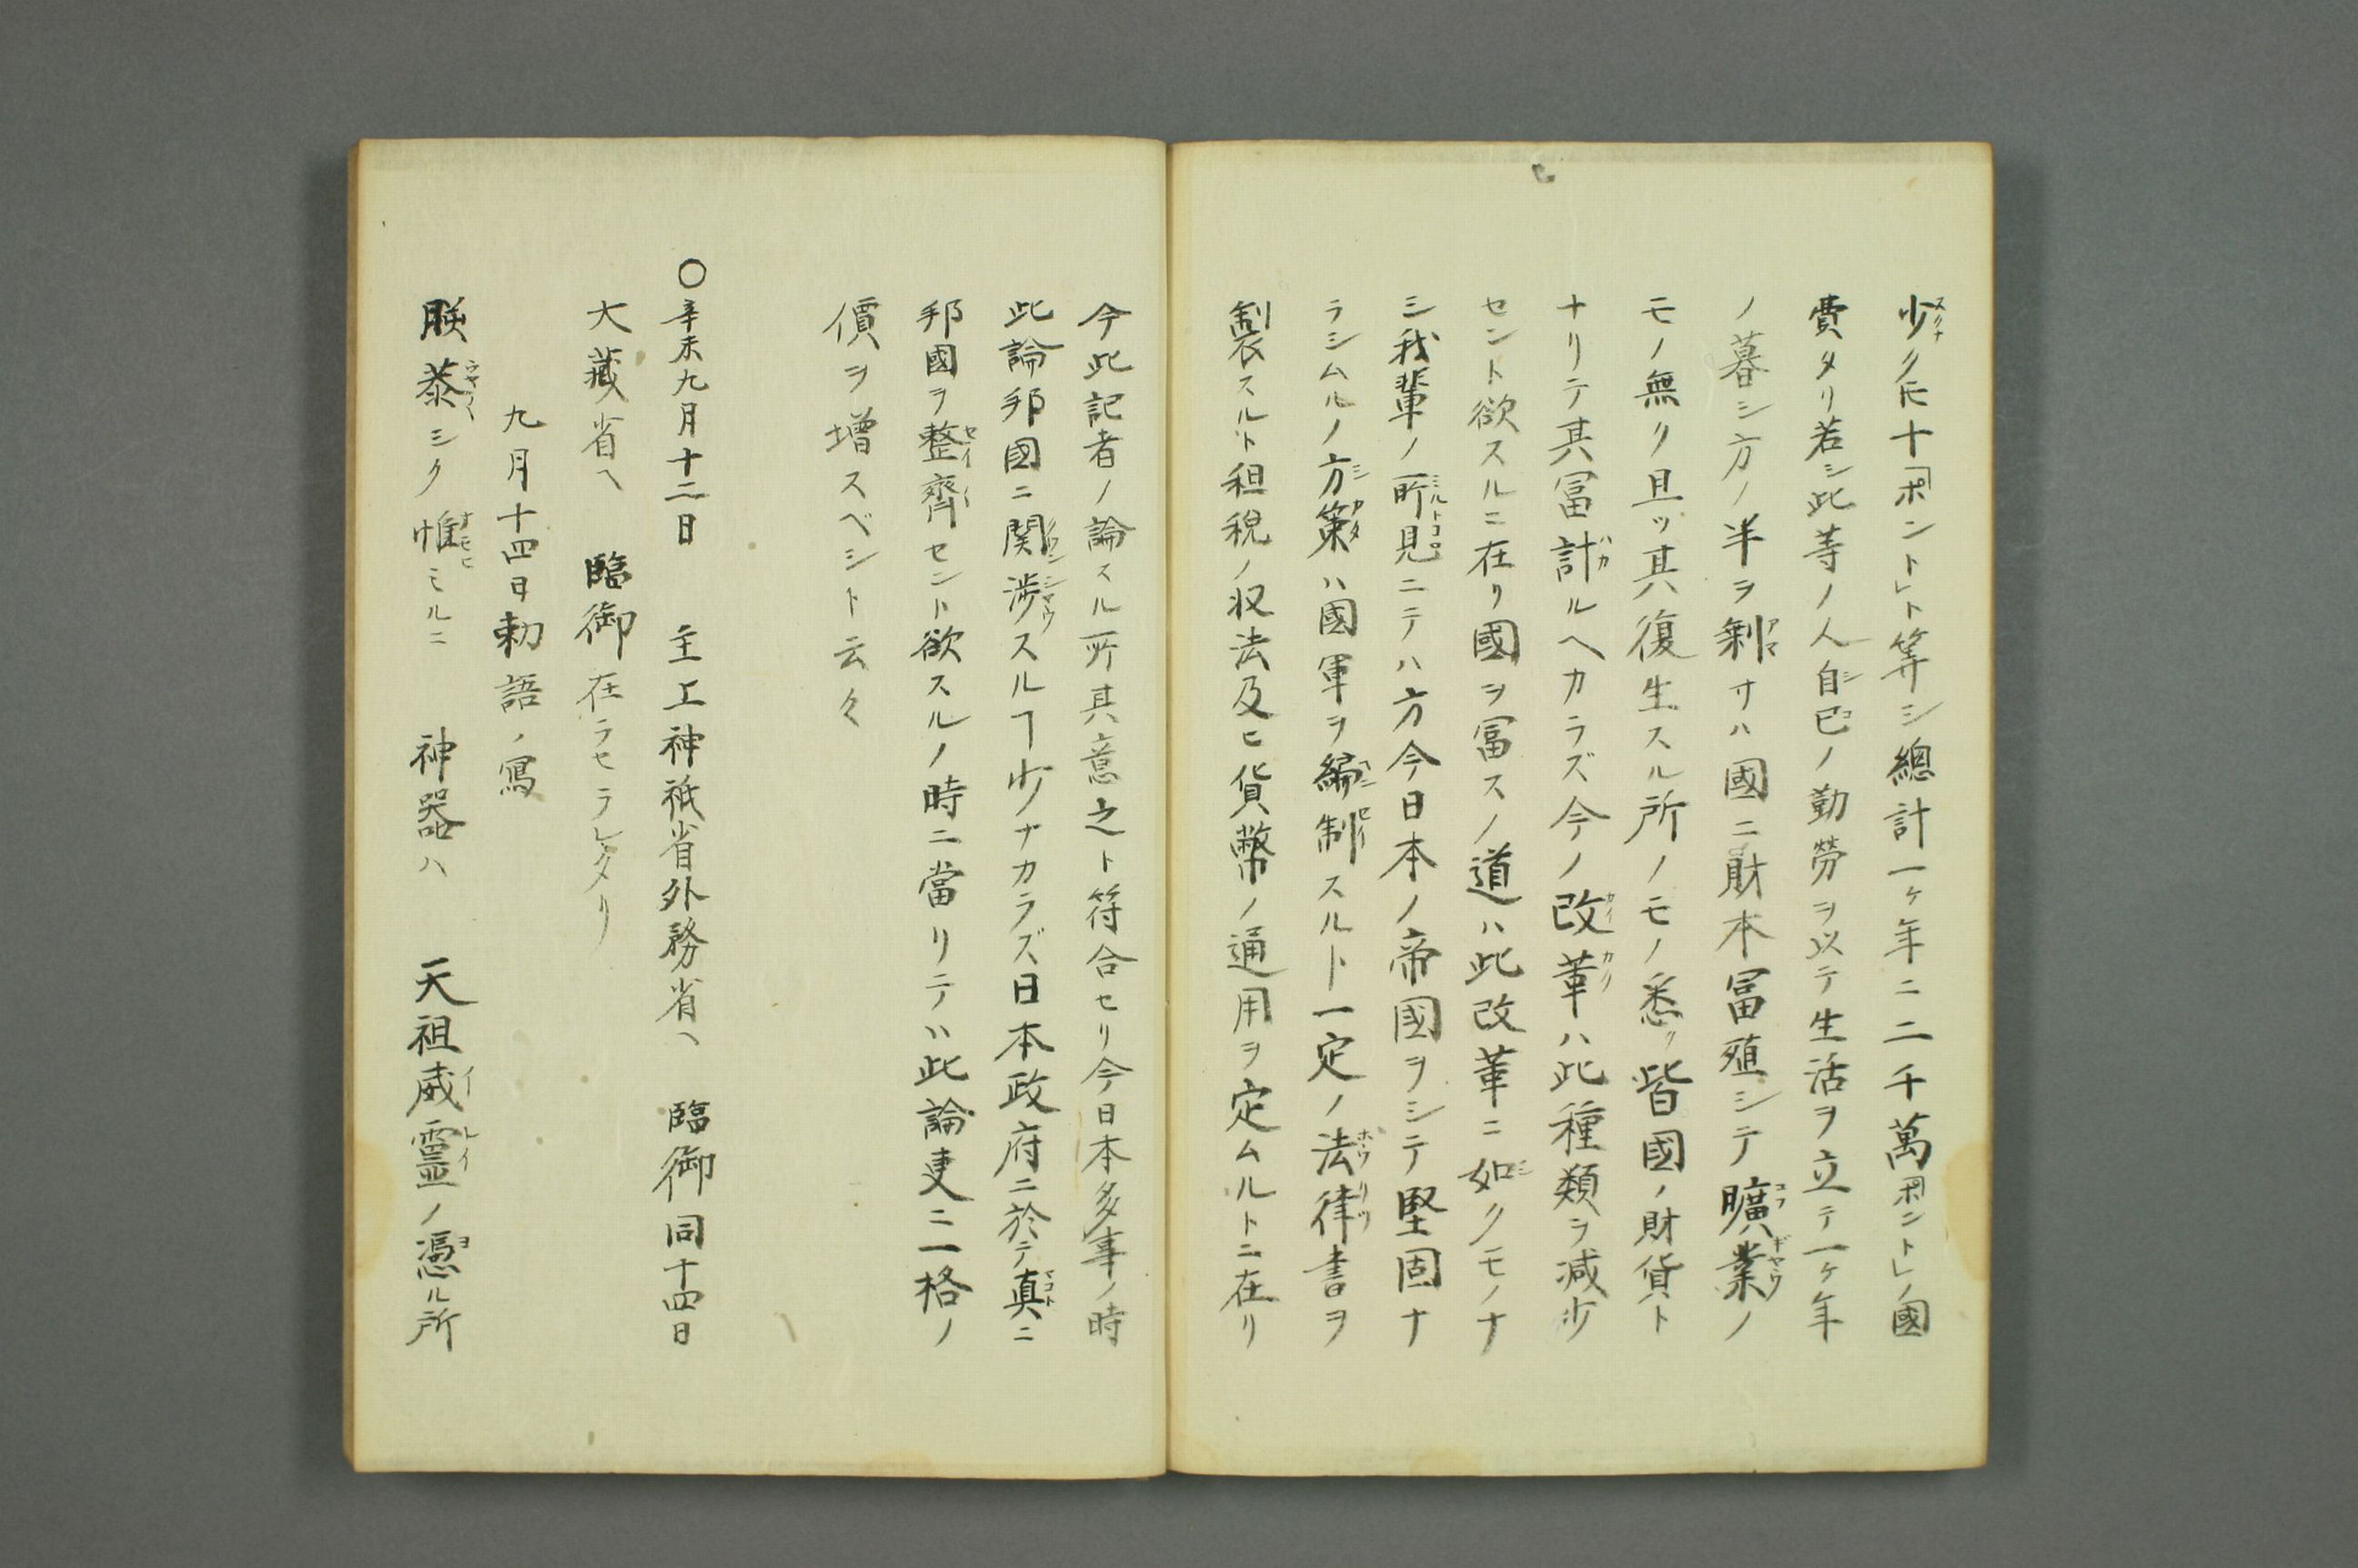 少クトモ十「ポント」ト算シ總計一ケ年ニ二千萬「ポント」ノ國
費タリ若シ此等ノ人自已ノ勤勞ヲ以テ生活ヲ立テ一ケ年
ノ暮シ方ノ半ヲ剰サハ國ニ財本冨殖シテ曠業ノ
モノ無ク且ツ其復生スル所ノモノ悉ク皆國ノ財貨ト
ナリテ其冨計ルヘカラズ今ノ改革ハ此種類ヲ减少
セント欲スルニ在リ國ヲ冨スノ道ハ此改革ニ如クモノナ
シ我輩ノ所見ニテハ方今日本ノ帝國ヲシテ堅固ナ
ラシムルノ方策ハ國軍ヲ編制スルト一定ノ法律書ヲ
製スルト租税ノ収法及ヒ貨幣ノ通用ヲ定ムルトニ在リ
今此記者ノ論スル所其意之ト符合セリ今日本多事ノ時
此論邦國ニ関渉スルヿ少ナカラズ日本政府ニ於テ真ニ
邦國ヲ整齊セント欲スルノ時ニ當リテハ此論更ニ一格ノ
價ヲ増スベシト云々
〇辛未九月十二日 主上神祇省外務省ヘ 臨御同十四日
大藏省ヘ 臨御在ラセラレタリ
九月十四日勅語ノ寫
朕恭シク惟ミルニ 神器ハ 天祖威霊ノ憑ル所